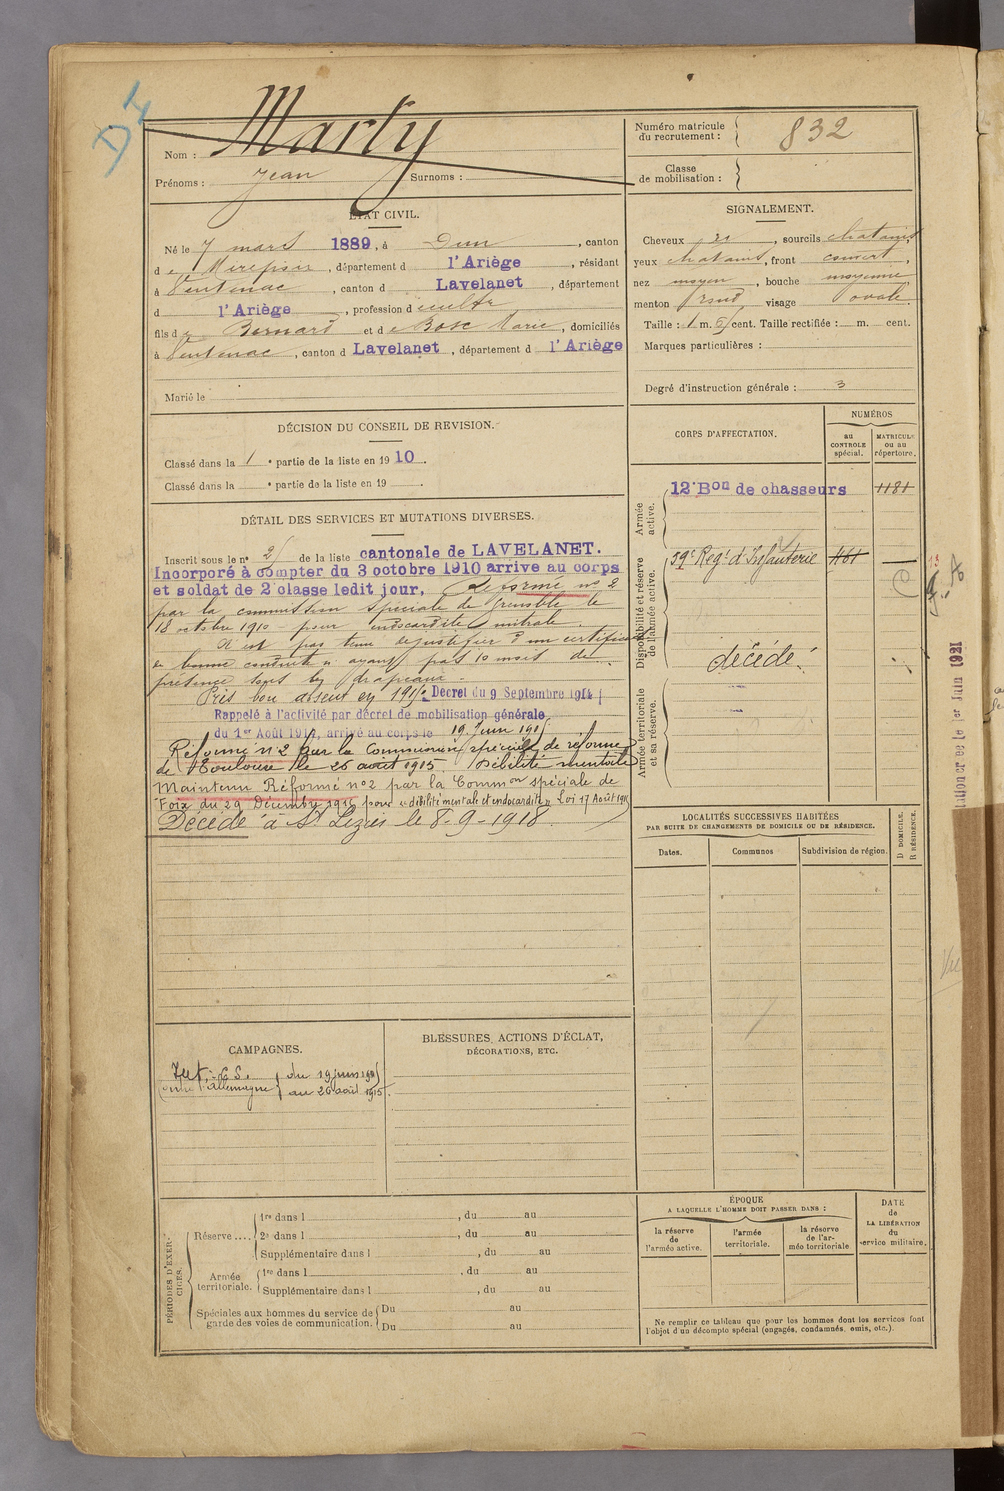 D4
Marty
Nom :
Prénoms : Jean Surnoms :
Numéro matricule
du recrutement : 832
Classe
de mobilisation :
ÉTAT CIVIL.
Né le 7 mars 1889, à Dun, canton
de Mirepoix, département d l'Ariège, résidant
à Ventenac, canton d Lavelanet, département
d l'Ariège, profession d cultr
fils de Bernard et de Bosc Marie, domiciliés
à Ventenac, canton d Lavelanet, département d l'Ariège
Marié le
SIGNALEMENT.
Cheveux, sourcils chatains,
yeux chatains, front couvert,
nez moyen, bouche moyenne
menton rond, visage ovale.
Taille : 1 m. cent. Taille rectifiée : m. cent.
Marques particulières :
Degré d'instruction générale : 3
DÉCISION DU CONSEIL DE REVISION.
Classé dans la 1 e partie de la liste en 1910.
Classé dans la e partie de la liste en 19 .
DÉTAIL DES SERVICES ET MUTATIONS DIVERSES.
Inscrit sous le n° de la liste cantonale de LAVELANET.
Incorporé à compter du 3 octobre 1910 arrive au corps
et soldat de 2e classe ledit jour, réformé n° 2
par la commission spéciale de Grenoble le
18 octobre 1910 pour endocardite mitrale.
N'est pas tenu de justifier d'un certificat
de bonne conduite n'ayant pas 10 mois de
présence sous les drapeaux.
Pris bon absent en 1915. Décret du 9 Septembre 1914
Rappelé à l'activité par décret de mobilisation générale
du 1er Août 1914, arrivé au corps le 19 Juin 1915
Réformé n°2 par la Commission spéciale de réforme
de Toulouse le 26 août 1915. Débilité mentale
Maintenu Réformé n°2 par la Common spéciale de
Foix du 29 Décembre 1916 pour "débilité mentale et endocardite" Loi 17 Août 1915
Décédé à St Lizier le 8-9-1918
CORPS D'AFFECTATION.
NUMÉROS
au
CONTROLE
spécial.
MATRICULE
ou au
répertoire.
Armée
active.
12e Bon de chasseurs 1181
Disponibilité et réserve
de l'armée active.
59e Regt d'Infanterie
décédé.
Armée territoriale
et sa réserve.
LOCALITÉS SUCCESSIVES HABITÉES
PAR SUITE DE CHANGEMENTS DE DOMICILE OU DE RÉSIDENCE.
Dates.
Communes
Subdivision de région.
D DOMICILE.
R RÉSIDENCE.
CAMPAGNES.
Int. C.S. du 19 juin 1915
Contre l'Allemagne au 26 août 1915.
BLESSURES, ACTIONS D'ÉCLAT,
DÉCORATIONS, ETC.
PÉRIODES D'EXERCICES.
Réserve .... 1re dans l , du au
2e dans l , du au
Supplémentaire dans l , du au
Armée
territoriale. 1re dans l , du au
Supplémentaire dans l , du au
Spéciales aux hommes du service de
garde des voies de communication. Du au
Du au
ÉPOQUE
A LAQUELLE L'HOMME DOIT PASSER DANS :
la réserve
de
l'armée active.
l'armée
territoriale.
la réserve
de l'armée territoriale
DATE
de
LA LIBÉRATION
du
service militaire.
Ne remplir ce tableau que pour les hommes dont les services font
l'objet d'un décompte spécial (engagés, condamnés, omis, etc.).
1er Juin 1921
Vu